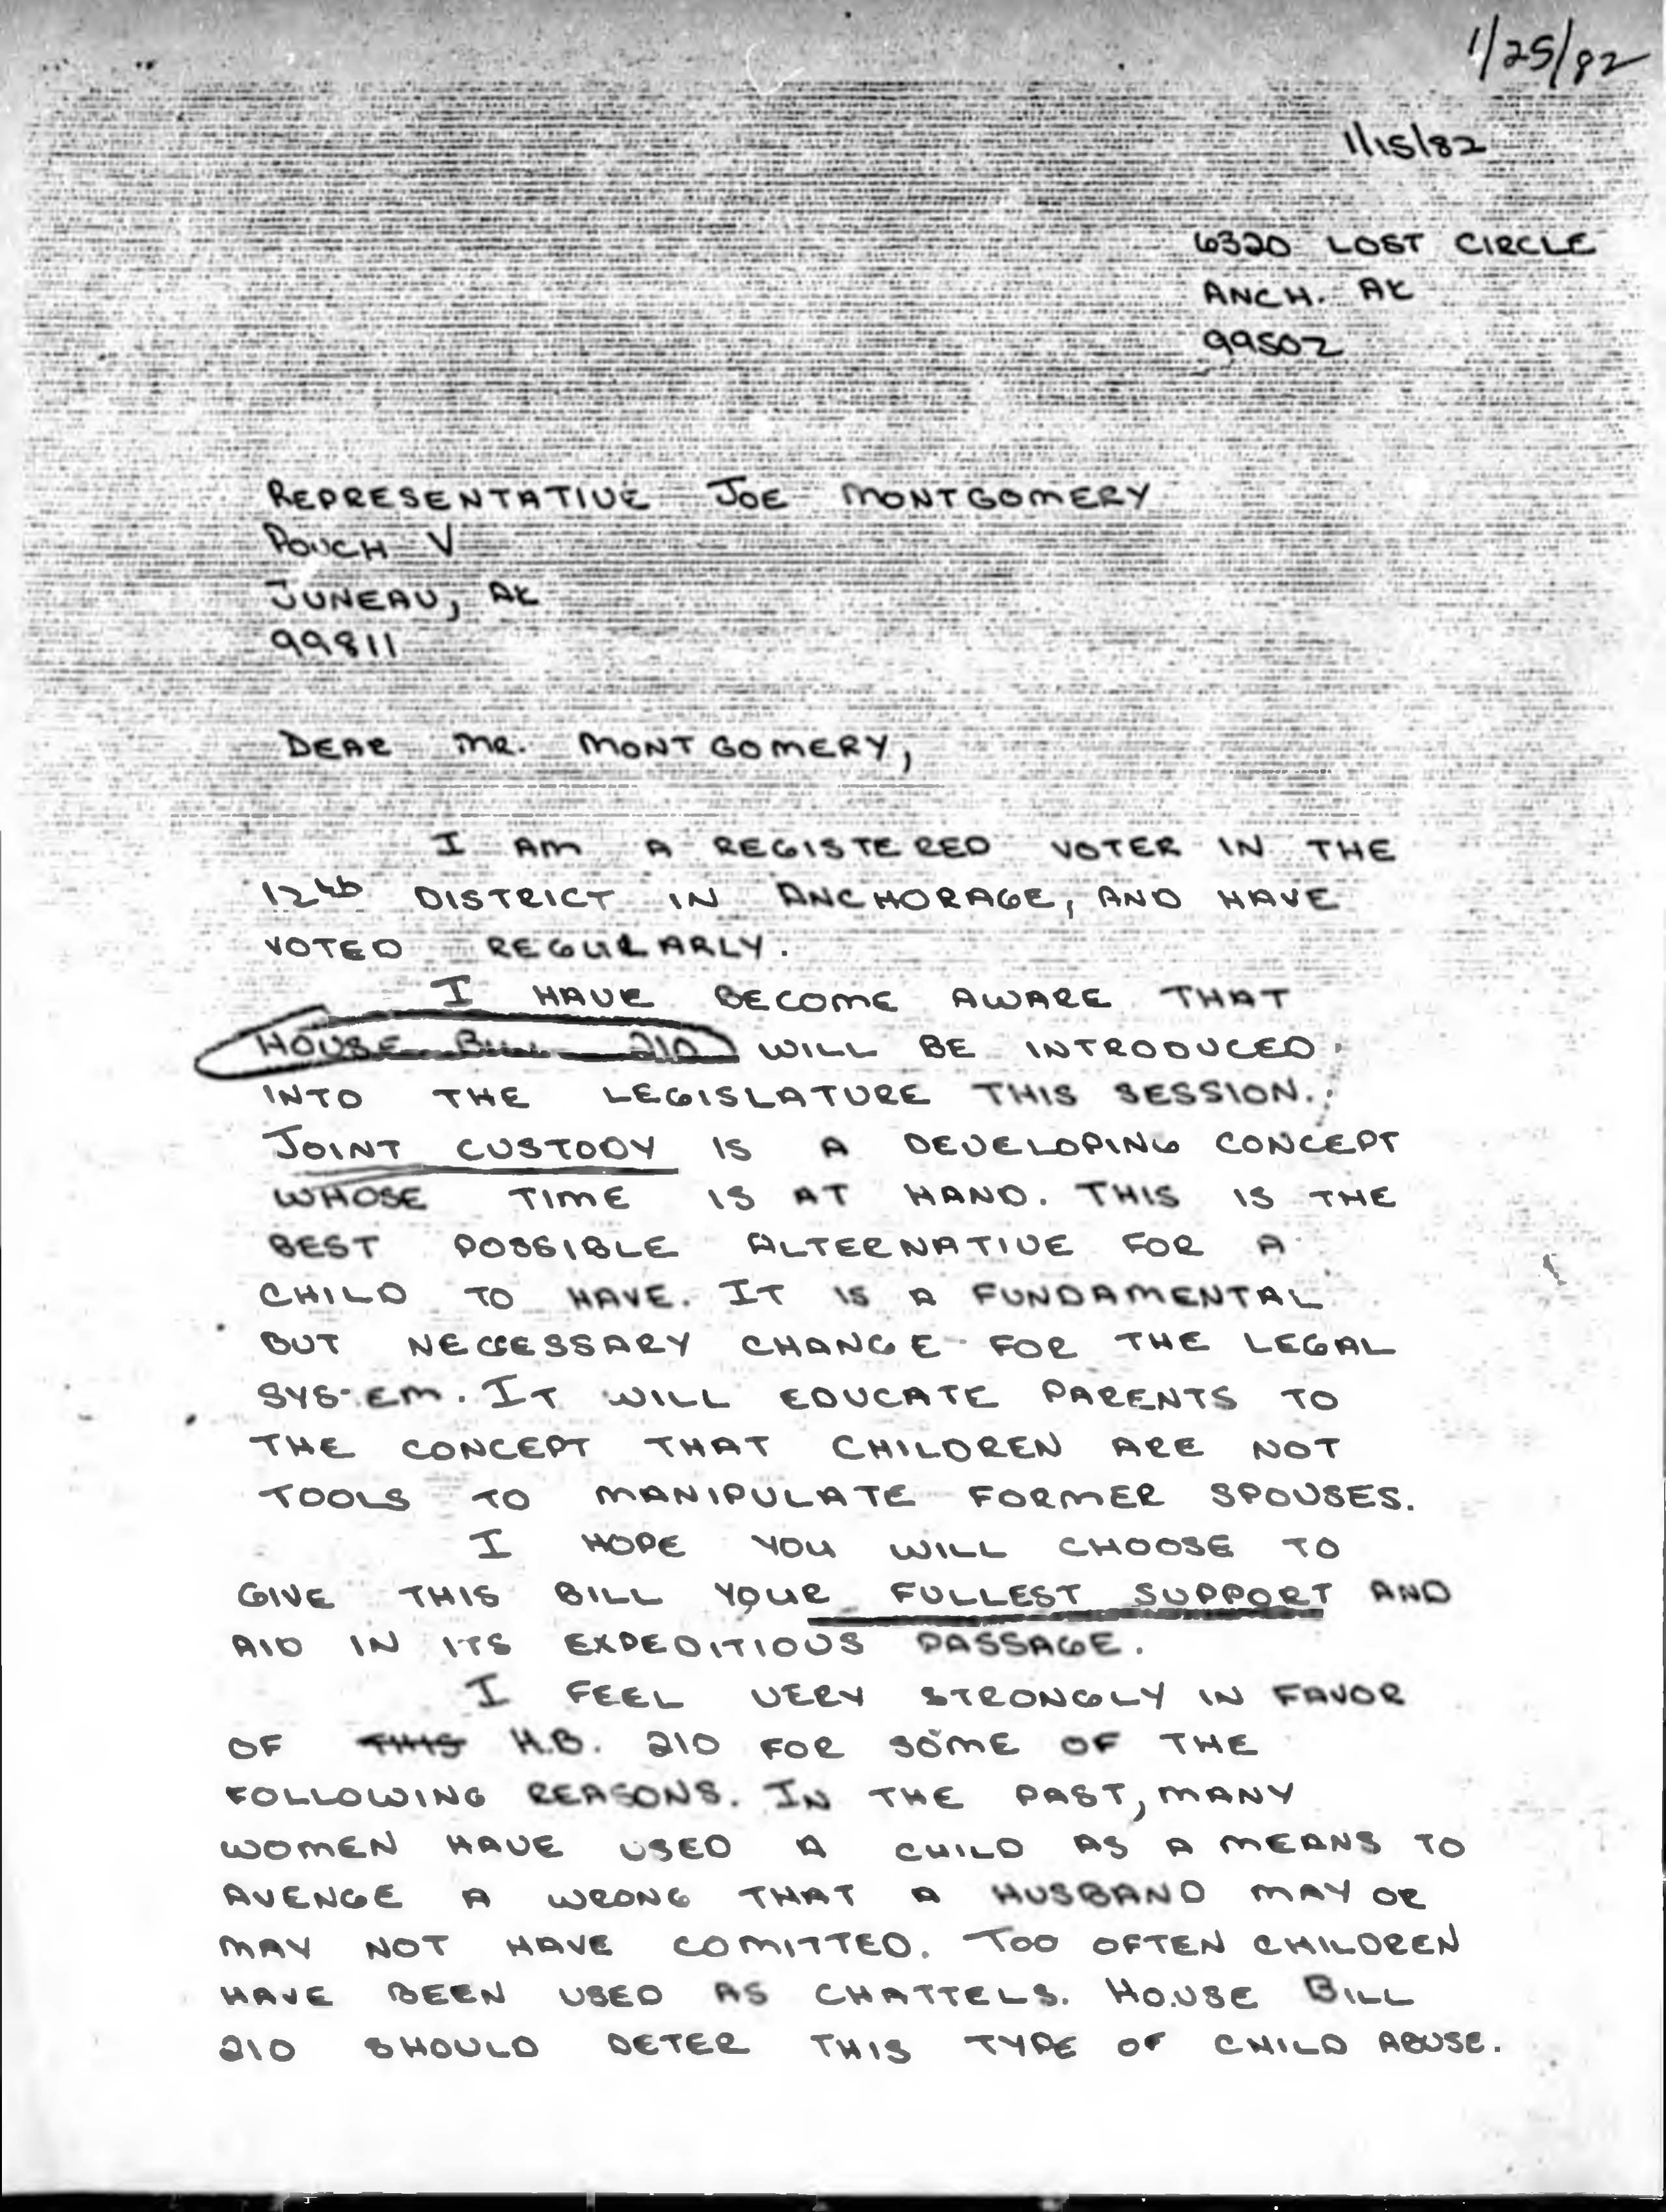 1/25/82
1/15/82
6320 LOST CIRCLE
ANCH. AK
99502
REPRESENTATIVE JOE MONTGOMERY
POUCH V
JUNEAU, AK
99811
DEAR MR. MONTGOMERY,
I AM A REGISTERED VOTER IN THE
12th DISTRICT IN ANCHORAGE, AND HAVE
VOTED REGULARLY.
I HAVE BECOME AWARE THAT
HOUSE BILL 210 WILL BE INTRODUCED
INTO THE LEGISLATURE THIS SESSION.
JOINT CUSTODY IS A DEVELOPING CONCEPT
WHOSE TIME IS AT HAND. THIS IS THE
BEST POSSIBLE ALTERNATIVE FOR A
CHILD TO HAVE. IT IS A FUNDAMENTAL
BUT NECESSARY CHANGE FOR THE LEGAL
SYSTEM. IT WILL EDUCATE PARENTS TO
THE CONCEPT THAT CHILDREN ARE NOT
TOOLS TO MANIPULATE FORMER SPOUSES.
I HOPE YOU WILL CHOOSE TO
GIVE THIS BILL YOUR FULLEST SUPPORT AND
AID IN ITS EXPEDITIOUS PASSAGE.
I FEEL VERY STRONGLY IN FAVOR
OF THIS H.B. 210 FOR SOME OF THE
FOLLOWING REASONS. IN THE PAST, MANY
WOMEN HAVE USED A CHILD AS A MEANS TO
AVENGE A WRONG THAT A HUSBAND MAY OR
MAY NOT HAVE COMITTED. TOO OFTEN CHILDREN
HAVE BEEN USED AS CHATTELS. HOUSE BILL
210 SHOULD DETER THIS TYPE OF CHILD ABUSE.